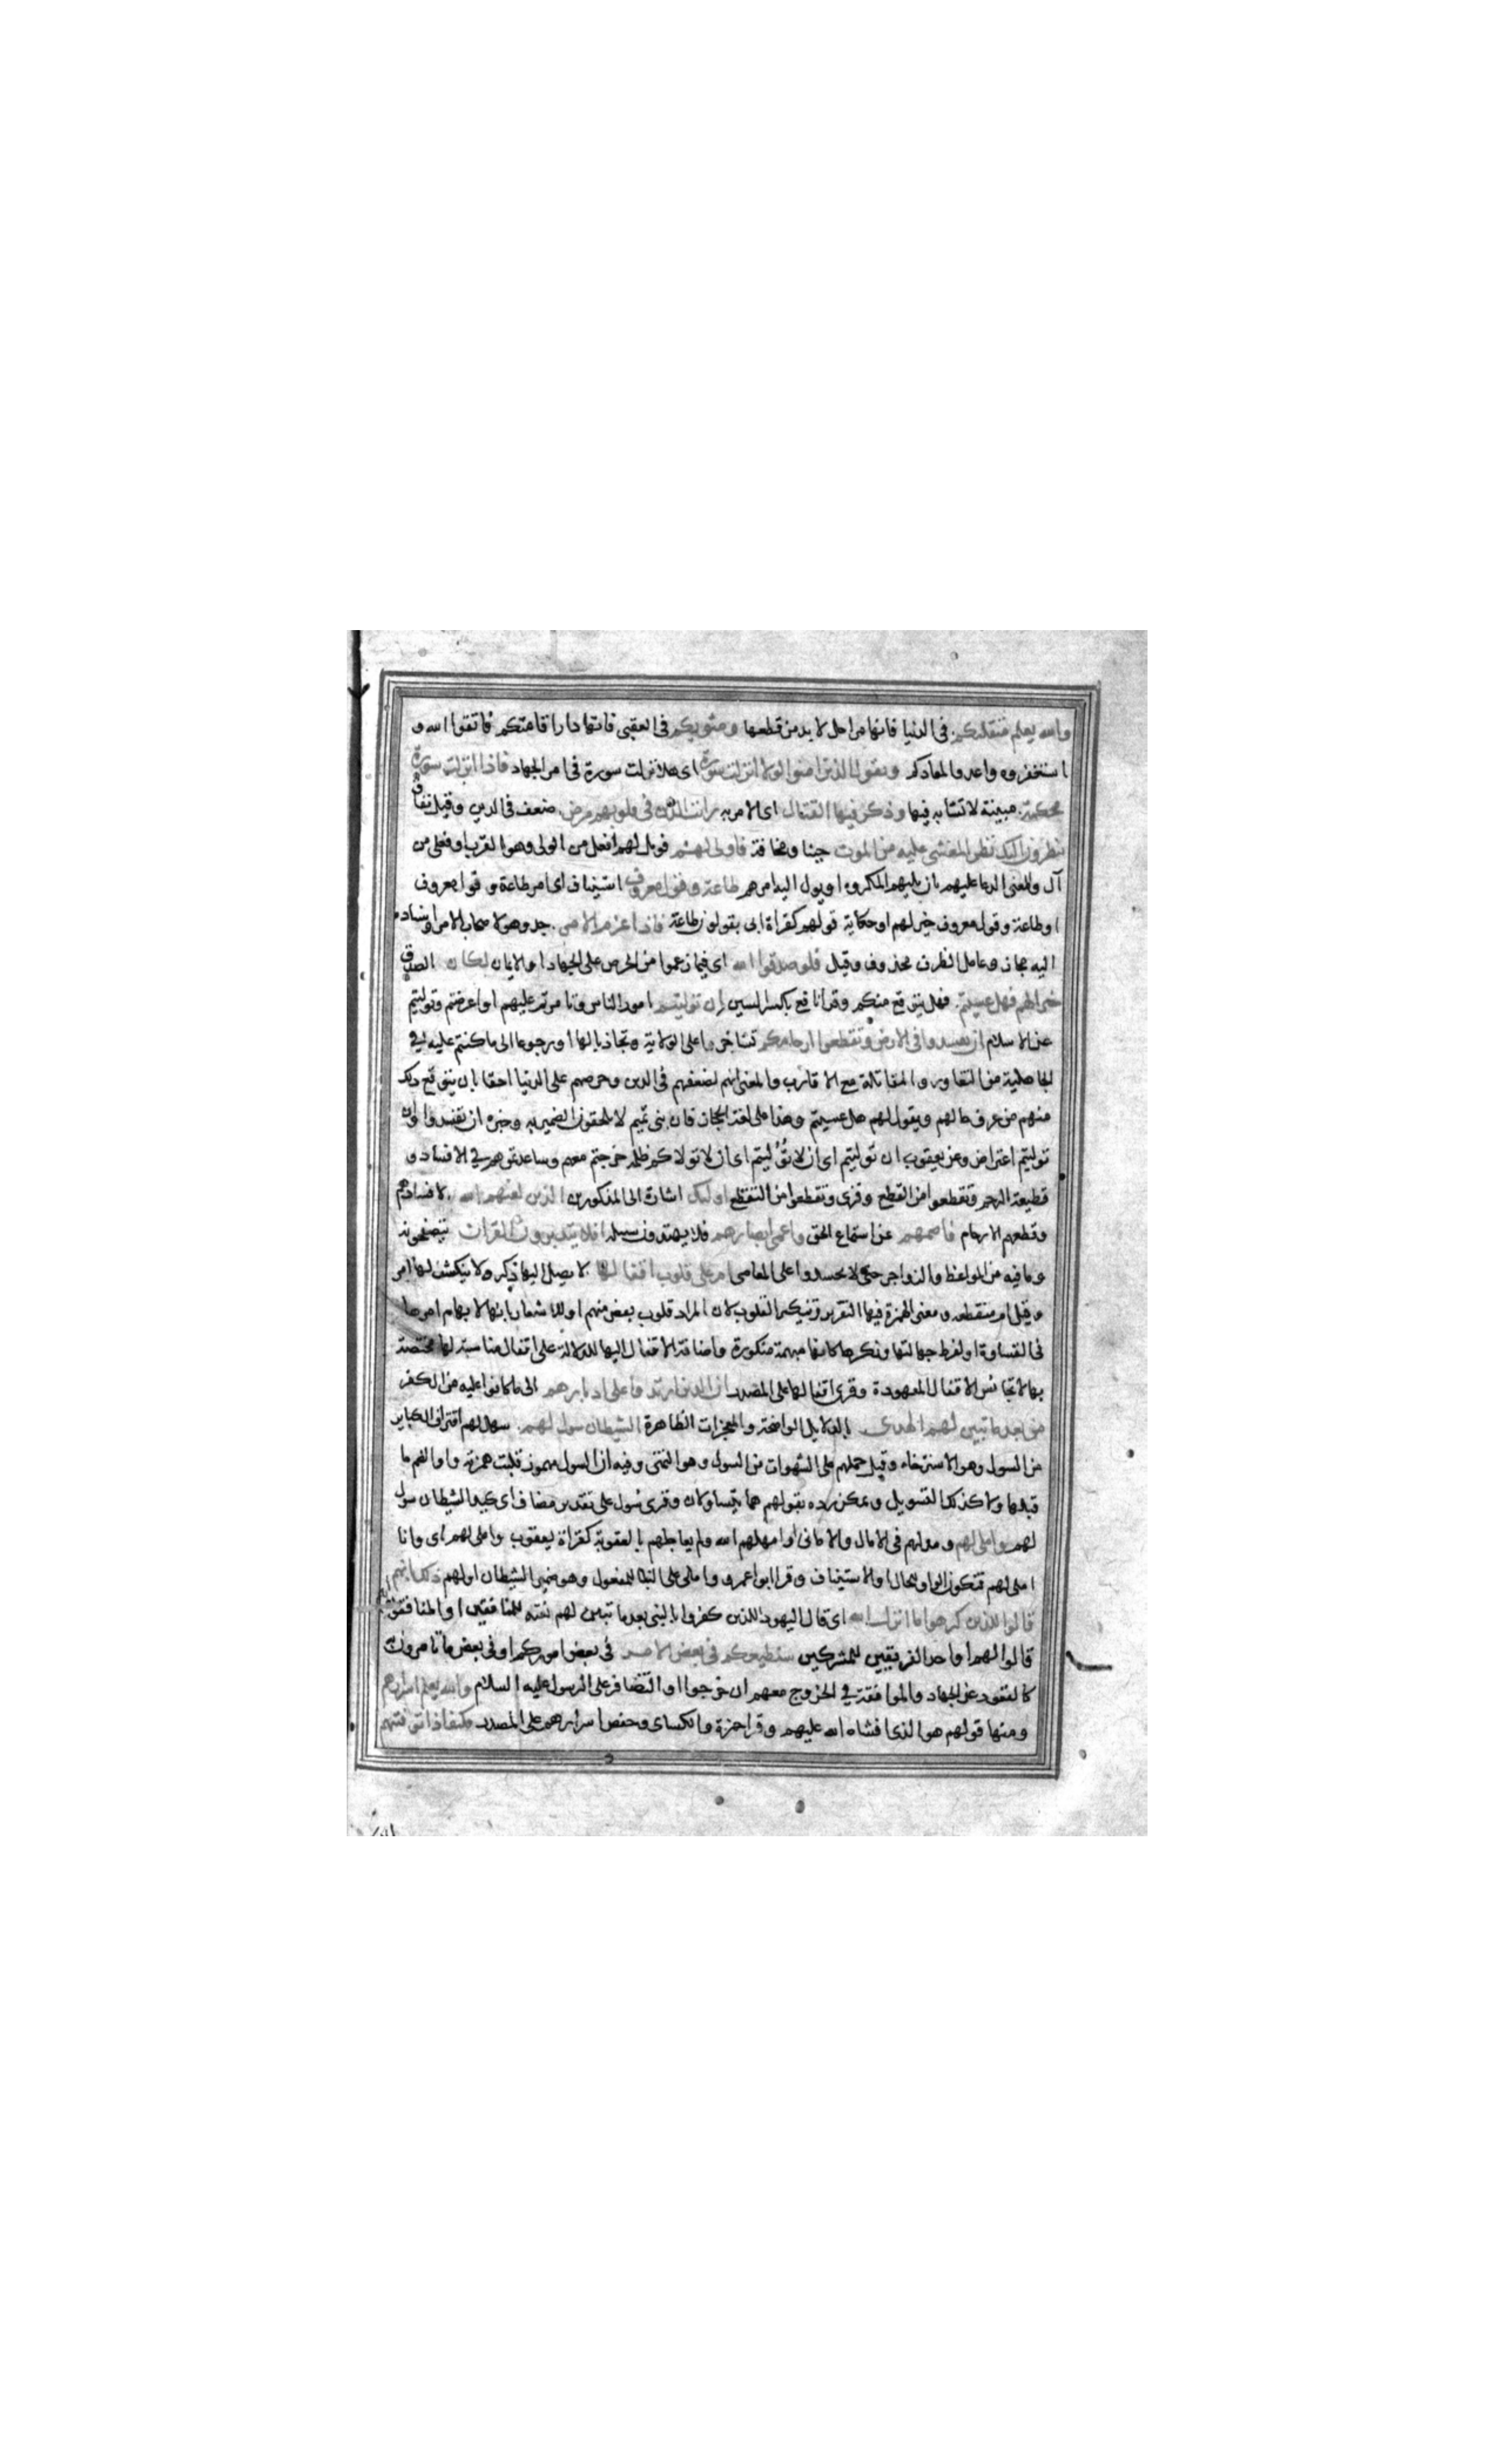 والله يعلم متقلبكم في الدنيا فانها مراحل لا بد من قطعها ومثويكم في العقبى فانها دار اقامتكم فاتقوا الله و
استغفروه واعدوا لمعادكم ويقول الذين امنوا لولا انزلت سورة اى هلا نزلت سورة فى امر الجهاد فاذا انزلت سورة
محكمة مبينة لا تشابه فيها وذكر فيها القتال اى الامر به رايت الذين فى قلوبهم مرض ضعف فى الدين وقيل نفاق
ينظرون اليك نظر المغشى عليه من الموت جبنا ومخافة فاولى لهم فويل لهم افعل من الولى وهو القرب او فعلى من
آل والمعنى الدعا عليهم بان يليهم المكروه او يول اليه امرهم طاعة وقول معروف استيناف اى امرطاعة و قول معروف
او طاعة وقول معروف خير لهم او حكاية قولهم كقراة ابى يقولون طاعة فاذا عزم الامر جد وهو لا صحاب الامر واسناده
اليه مجاز وعامل الظرف محذوف وقيل فلو صدقوا الله اى فيما زعموا من الحرص على الجهاد او الايمان لكان الصدق
خيرا لهم فهل عسيتم فهل يتوقع منكم وقرا نافع بكسر السين ان توليتم امور الناس وتامرتم عليهم او اعرضتم وتوليتم
عن الاسلام ان تفسدوا فى الارض وتقطعوا ارحامكم تشاخرا على الولاية وتجاذبا لها او رجوعا الى ما كنتم عليه في
الجاهلية من التغاور والمقاتلة مع الاقارب والمعنى انهم لضعفهم فى الدين وحرصهم على الدنيا احقا بان يتوقع ذلك
منهم من عرف حالهم ويقول لهم هل عسيتم وهذا على لغة الحجاز فان بنى تميم لا يلحقون الضمير به وخبره ان تفسدوا وان
توليتم اعتراض وعن يعقوب ان توليتم اى ان لا تُوُليتم اى ان لا تولاكم ظلمة خرجتم معهم وساعدتموهم في الافساد و
قطيعة الرحم وتقطعوا من القطع وقرى وتقطعوا من التقطع اوليك اشارة الى المذكورين الذين لعنهم الله لافسادهم
وقطعهم الارحام فاصمهم عن استماع الحق واعمى ابصارهم فلا يهتدون سبيله افلا يتدبرون القران يتصفحونه
وما فيه من المواعظ والزواجر حتى لا يجسروا على المعاصى ام على قلوب اقفالها لا يصل اليها ذكر ولا ينكشف لها امر
وقيل ام منقطعه ومعنى الهمزة فيها التقرير وتنيكر القلوب لان المراد قلوب بعض منهم او للاشعار بانها لابهام امرها
فى القساوة او لفرط جهالتها ونكرها كانها مبهمة منكورة واضافة الاقفال اليها للدلالة على اقفال مناسبة لها مختصة
بها لا تجانس الاقفال المعهودة وقرى اقفالها على المصدر ان الذين ارتدوا على ادبارهم الى ما كانوا عليه من الكفر
من بعد ما تبين لهم الهدى بالدلايل الواضحة والمعجزات الظاهرة الشيطان سول لهم سهل لهم اقتراف الكباير
من السول وهو الاسترخاء وقيل حملهم على الشهوات من السول وهو التمنى وفيه ان السول مهموز قلبت همزته واوا لضم ما
قبلها ولا كذلك التسويل ويمكن رده بقولهم هما يتساولان وقرى سول على تقدير مضاف اى كيد الشيطان سول
لهم واملى لهم ومد لهم فى الامال والامانى او امهلهم الله ولم يعاجلهم بالعقوبة كقراة يعقوب واملى لهم اى وانا
املى لهم فتكون الواو للحال او الاستيناف وقرا ابو اعمرو واملى على البنا للمفعول وهو ضمير الشيطان او لهم ذلك بانهم
قالوا للذين كرهوا ما انزل الله اى قال اليهود للذين كفروا بالنبى بعد ما تبين لهم نعته للمنافقين او المنافقون
قالوا لهم او احد الفريقين للمشركين سنطيعكم فى بعض الامر فى بعض اموركم او فى بعض ما تامرون به
كالقعود عن الجهاد والموافقة في الخروج معهم ان خرجوا او التضافر على الرسول عليه السلام والله يعلم اسرارهم
ومنها قولهم هو الذى افشاه الله عليهم وقرا حمزة والكساى وحفص اسرارهم على المصدر فكيف اذا توفتهم